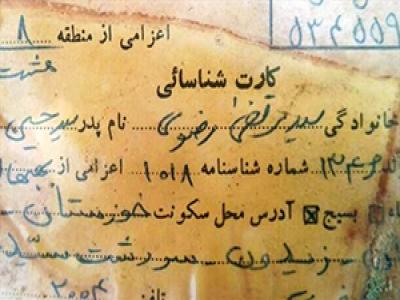 ۵۳۴۵۵۹
اعزامی از منطقه ۸
هشت
کارت شناسائی
خانوادگی سید مرتضی رضوی نام پدر سید یحیی
۱۳۴۶ شماره شناسنامه ۱۰۱۸ اعزامی از
بسیج آدرس محل سکونت خوزستان
زیدون سردشت
تلفن ۲۰۵۴